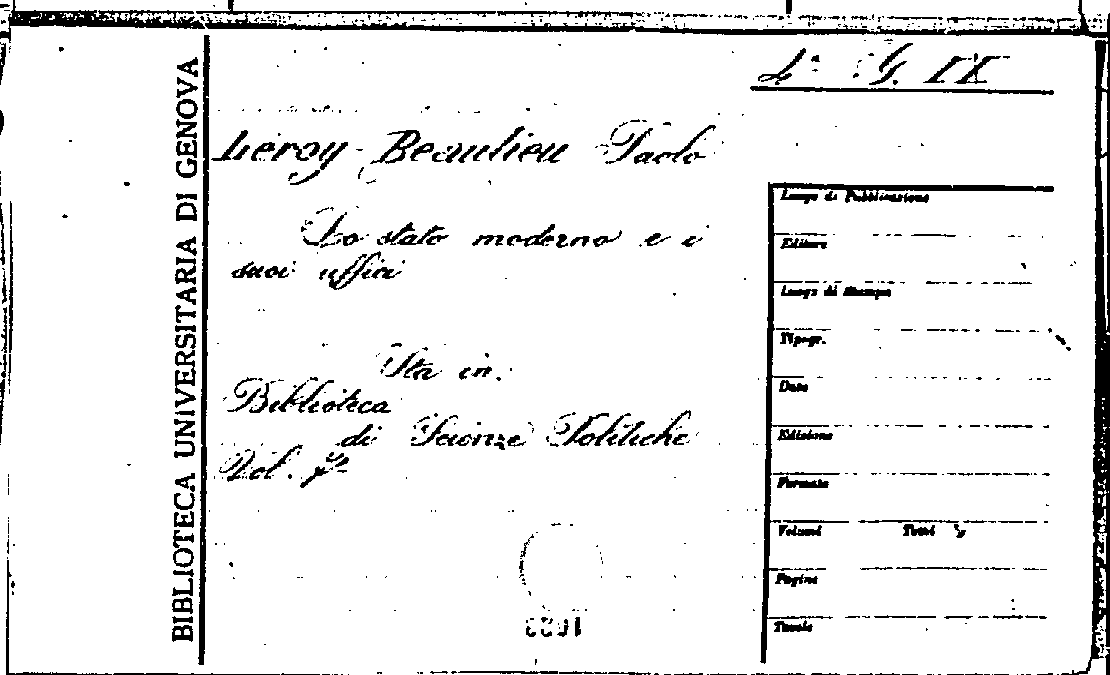 4ª G. IX
BIBLIOTECA UNIVERSITARIA DI GENOVA
Leroy-Beaulieu Paolo
Lo stato moderno e i
suoi uffici
Sta in:
Biblioteca
di Scienze Politiche
Vol. 7º
Luogo di Pubblicazione
Editore
Luogo di Stampa
Tipogr.
Data
Edizione
Formato
Volumi Tomi
Pagine
Tavole